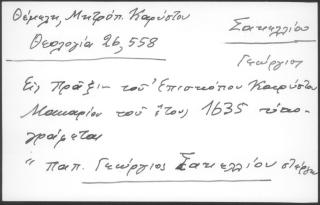 Θέμελη, Μητρόπ. Καρύστου
Θεολογία 26, 558
Σακελλίου
Γεώργιος
Εἰς Πρᾶξιν τοῦ Ἐπισκόπου Καρύστου
Μακαρίου τοῦ ἔτους 1635 ὑπο-
γράφεται
" παπ. Γεώργιος Σακελλίου